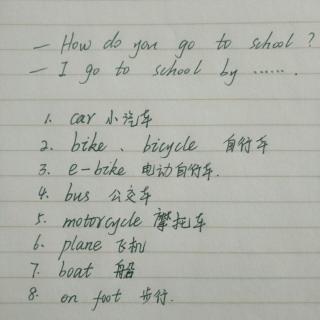 — How do you go to school ?
— I go to school by …… .
1. car 小汽车
2. bike 、 bicycle 自行车
3. e-bike 电动自行车.
4. bus 公交车
5. motorcycle 摩托车
6. plane 飞机
7. boat 船
8. on foot 步行.